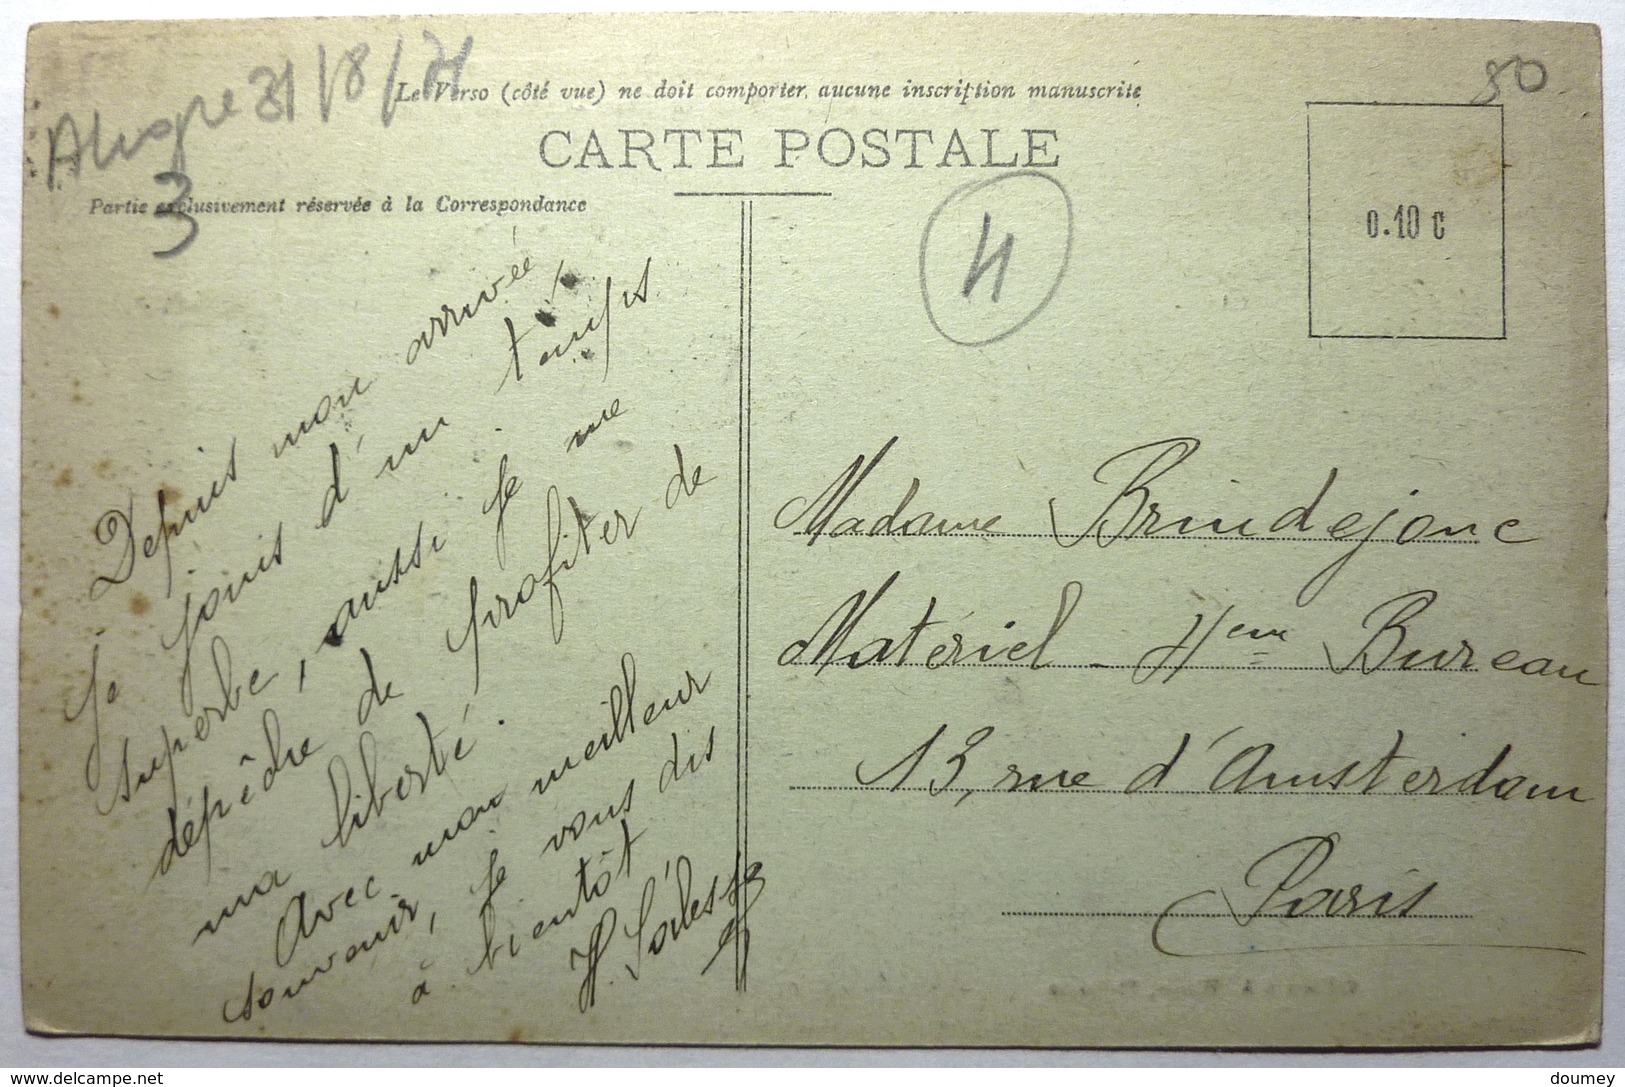 31/8/21
80
3
Le Verso (côté vue) ne doit comporter aucune inscription manuscrite
CARTE POSTALE
Partie exclusivement réservée à la Correspondance
4
0.10 c
Depuis mon arrivée,
je jouis d'un temps
superbe, aussi je me
dépêche de profiter de
ma liberté.
Avec mon meilleur
souvenir, je vous dis
à bientôt
Madame Brindejonc
Matériel - 4eme Bureau
13, rue d'Amsterdam
Paris
doumey